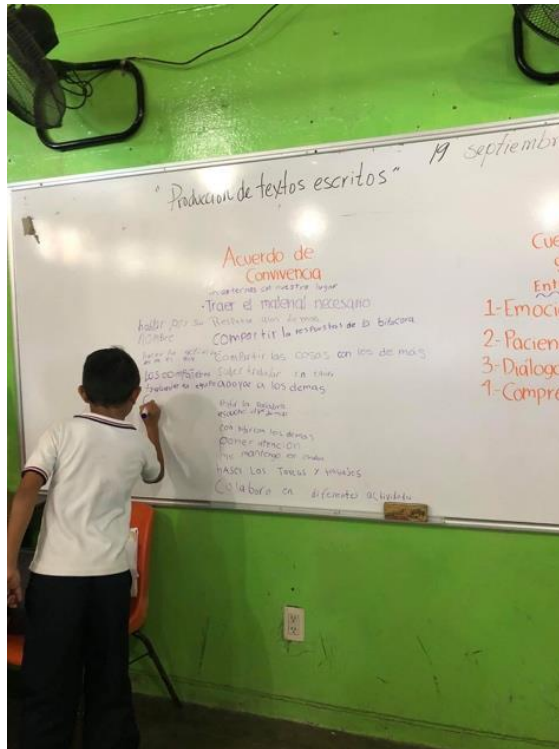 "Producción de textos escritos"
19 septiembr
Acuerdo de
Convivencia
mantenernos en nuestro lugar
·Traer el material necesario
hablar por su
nombre
Respetar a los demas
Compartir las respuestas de la bitacora
Compartir las cosas con los demas
Los compañeros
Saber trabajar en
apoyar a los demas
Pedir la palabra
escuchar a los demas
con los demas
poner atención
me mantengo en
hAser Las Tareas y trabajos
Colaboro en diferentes actividades
Cue
Ent
1-Emoci
2-Pacien
3-Dialogo
4-Compre